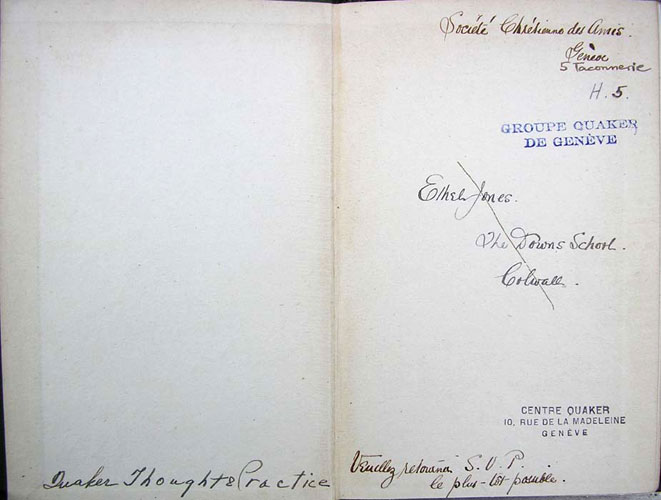 Quaker Thought & Practice
Société Chrétienne des Amis.
Genève
5 Taconnerie
H. 5.
GROUPE QUAKER
DE GENÈVE
Ethel Jones.
The Downs School.
Colwall.
CENTRE QUAKER
10, RUE DE LA MADELEINE
GENÈVE
Veuillez retourner S.V.P.
le plus-tôt possible.